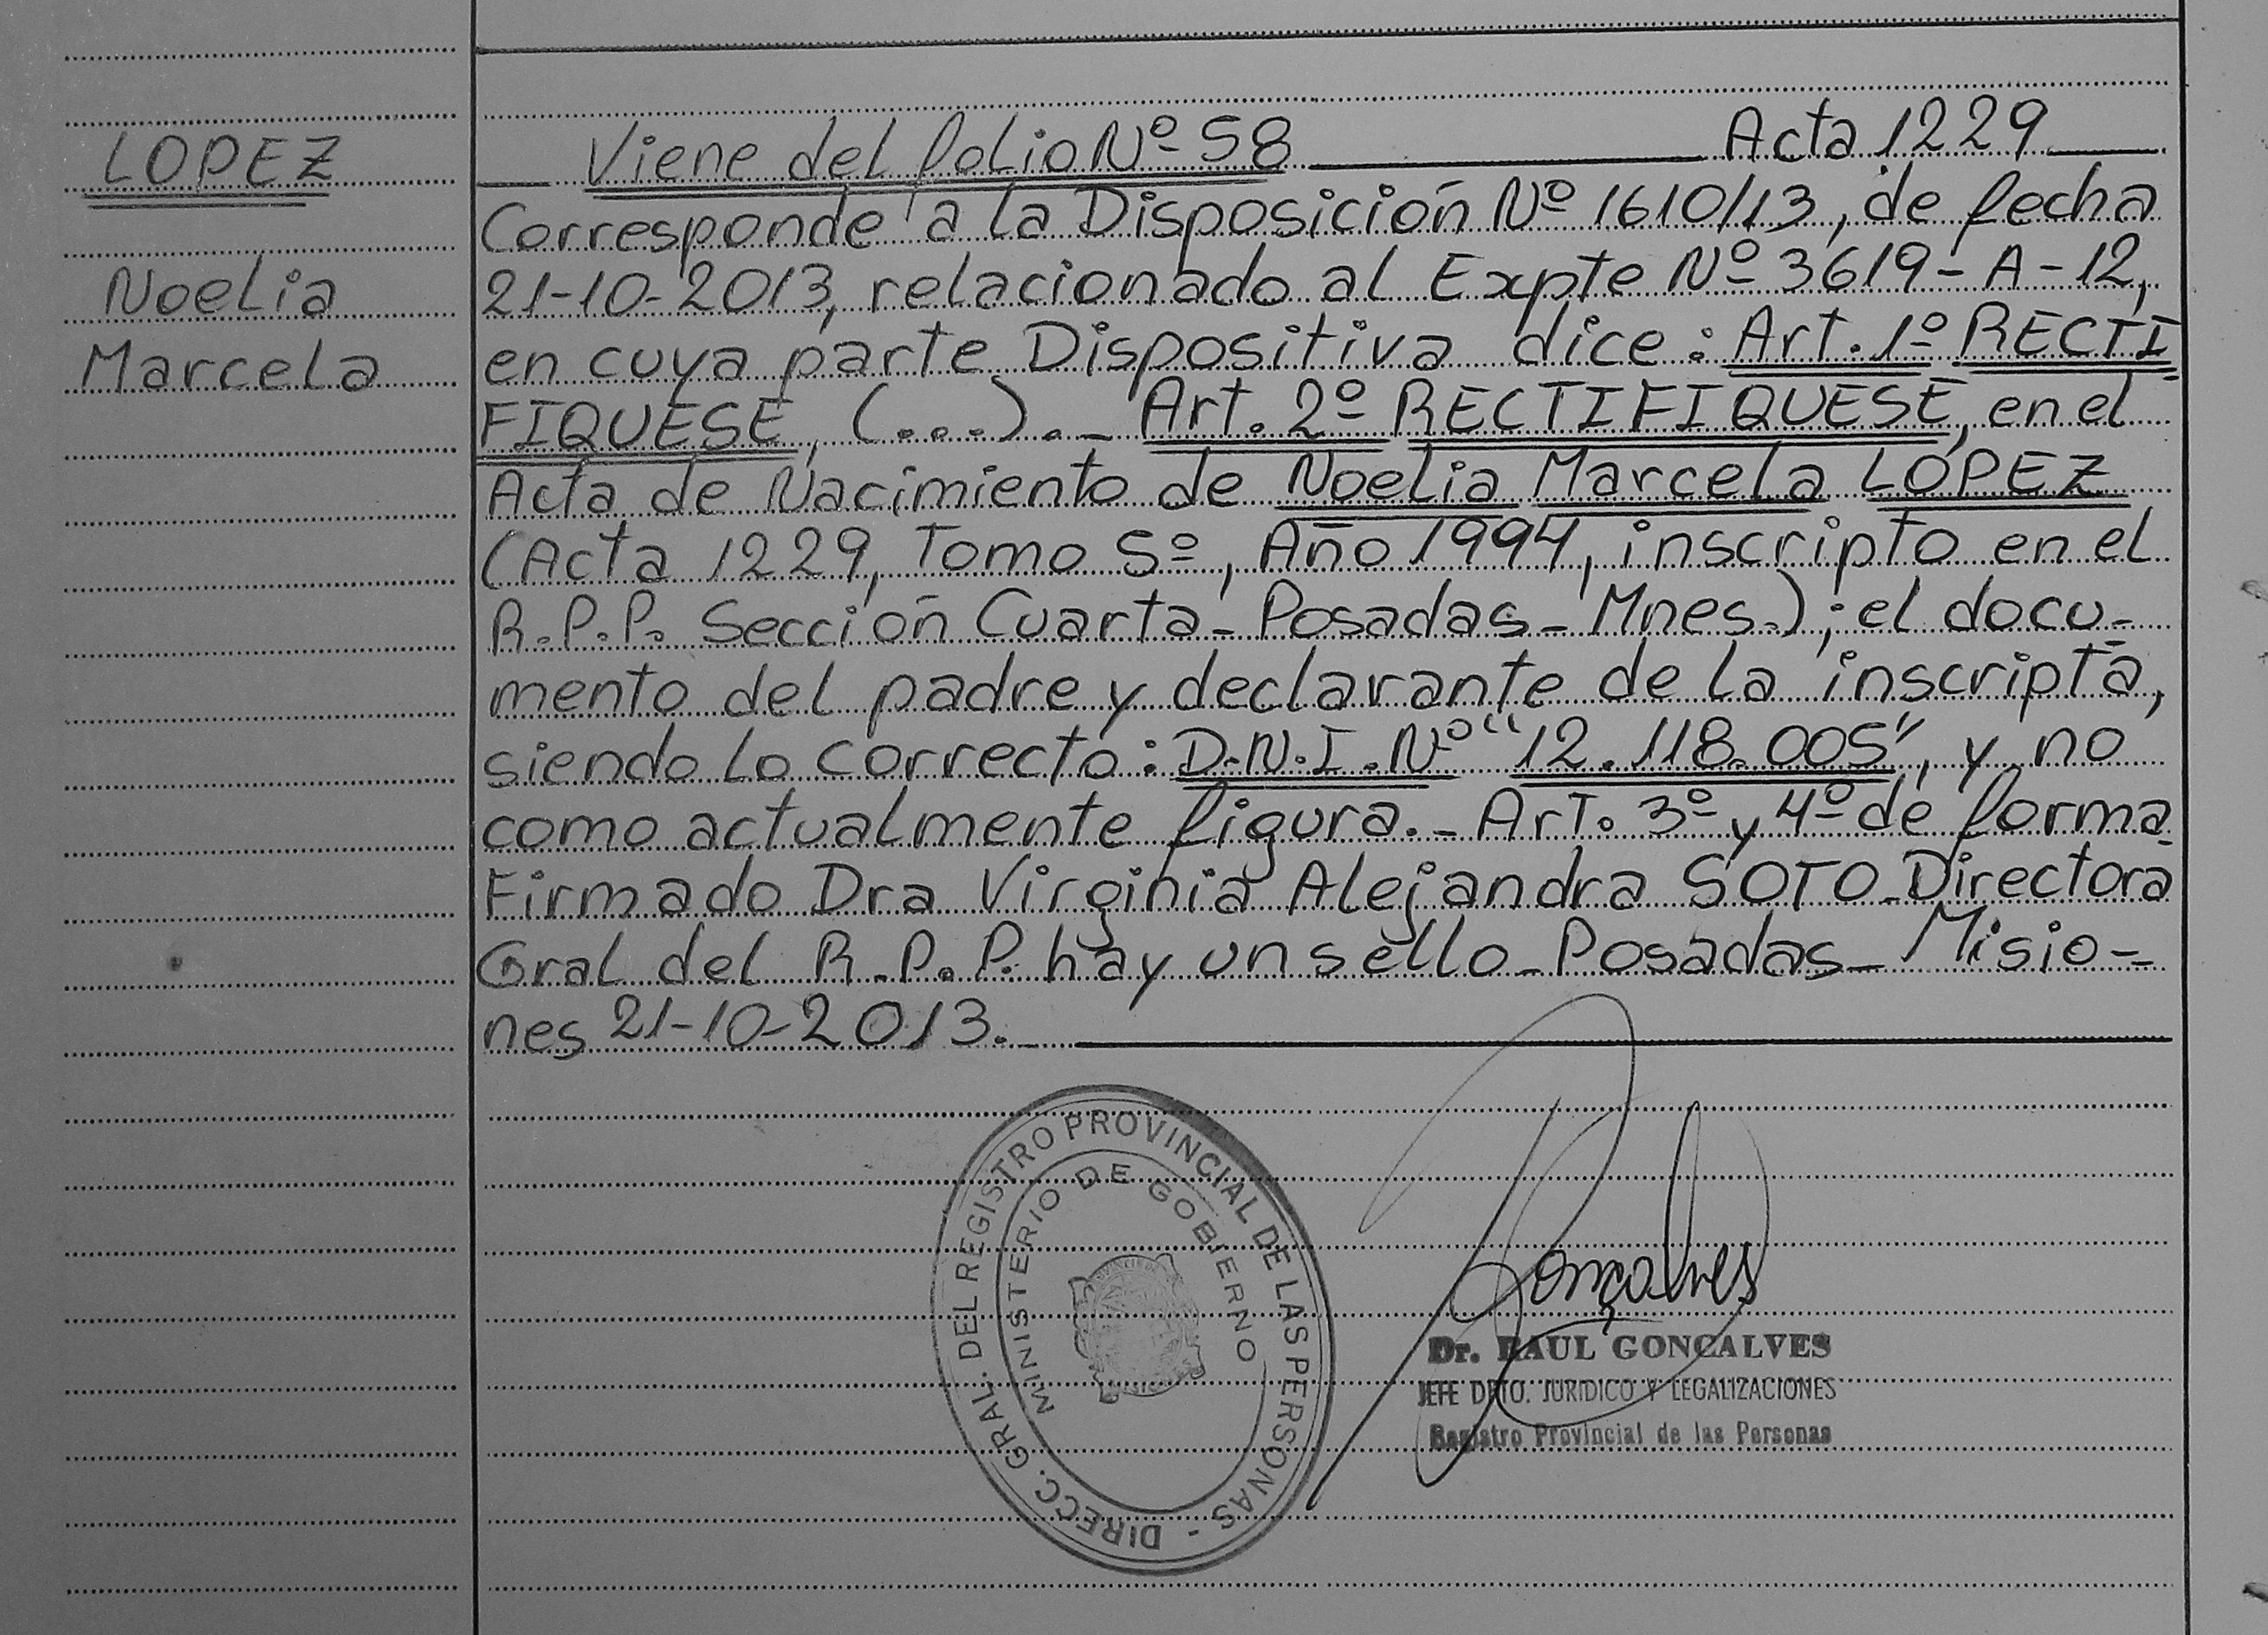 LOPEZ
Noelia
Marcela
Viene del folio Nº 58 Acta 1229
Corresponde a la Disposición Nº 1610/13, de fecha
21-10-2013, relacionado al Expte Nº 3619-A-12,
en cuya parte Dispositiva dice: Art. 1º RECTI
FIQUESE, (...).- Art. 2º RECTIFIQUESE, en el
Acta de Nacimiento de Noelia Marcela LÓPEZ
(Acta 1229, Tomo 5º, Año 1994, inscripto en el
R.P.P. Sección Cuarta - Posadas - Mnes.); el docu-
mento del padre y declarante de la inscripta,
siendo lo correcto: D.N.I. Nº "12.118.005", y no
como actualmente figura.- Art. 3º y 4º de forma
Firmado Dra Virginia Alejandra SOTO - Directora
Gral del R.P.P. hay un sello - Posadas - Misio-
nes 21-10-2013.-
DIRECC. GRAL. DEL REGISTRO PROVINCIAL DE LAS PERSONAS -
MINISTERIO DE GOBIERNO
Gonçalves
Dr. RAUL GONCALVES
JEFE DPTO. JURIDICO Y LEGALIZACIONES
Registro Provincial de las Personas